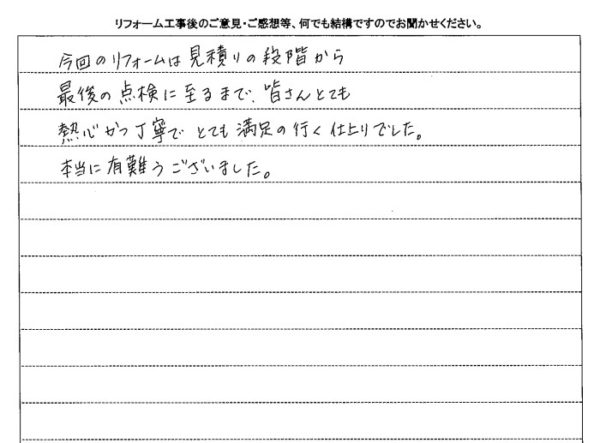 リフォーム工事後のご意見・ご感想等、何でも結構ですのでお聞かせください。
今回のリフォームは見積りの段階から
最後の点検に至るまで、皆さんとても
熱心かつ丁寧で とても満足の行く仕上りでした。
本当に有難うございました。